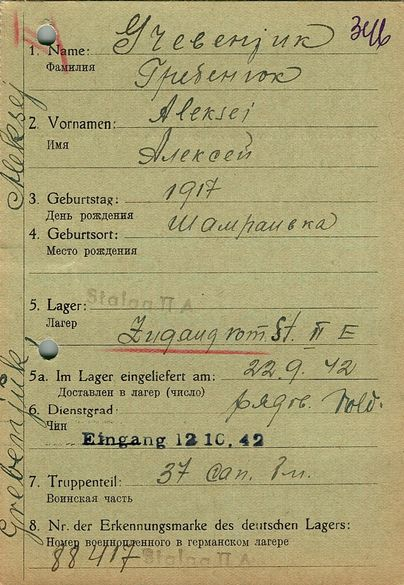 346
1. Name: Grebenjuk
Фамилия Гребенюк
2. Vornamen: Aleksej
Имя Алексей
3. Geburtstag: 1917
День рождения
4. Geburtsort: Шамраивка
Место рождения
Stalag II A
5. Lager:
Лагерь Zugang vom St. II E
5a. Im Lager eingeliefert am: 22.9.42
Доставлен в лагерь (число)
6. Dienstgrad: рядов. Sold.
Чин
Eingang 12 10. 42
7. Truppenteil: 37 сап.
Воинская часть
8. Nr. der Erkennungsmarke des deutschen Lagers:
Номер военнопленного в германском лагере
88417 Stalag II A
Grebenjuk Aleksej